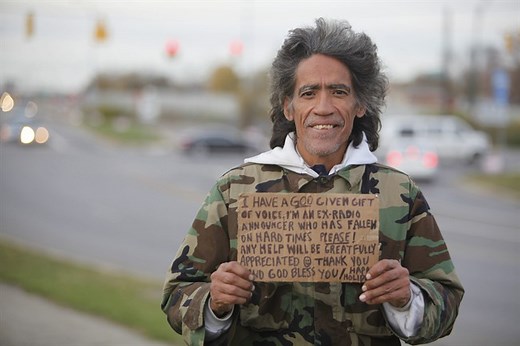 I HAVE A GOD GIVEN GIFT
OF VOICE. I'M AN EX-RADIO
ANNOUNCER WHO HAS FALLEN
ON HARD TIMES PLEASE!
ANY HELP WILL BE GREATFULLY
APPRECIATED @ THANK YOU
AND GOD BLESS YOU/HAPPY
HOLIDAY